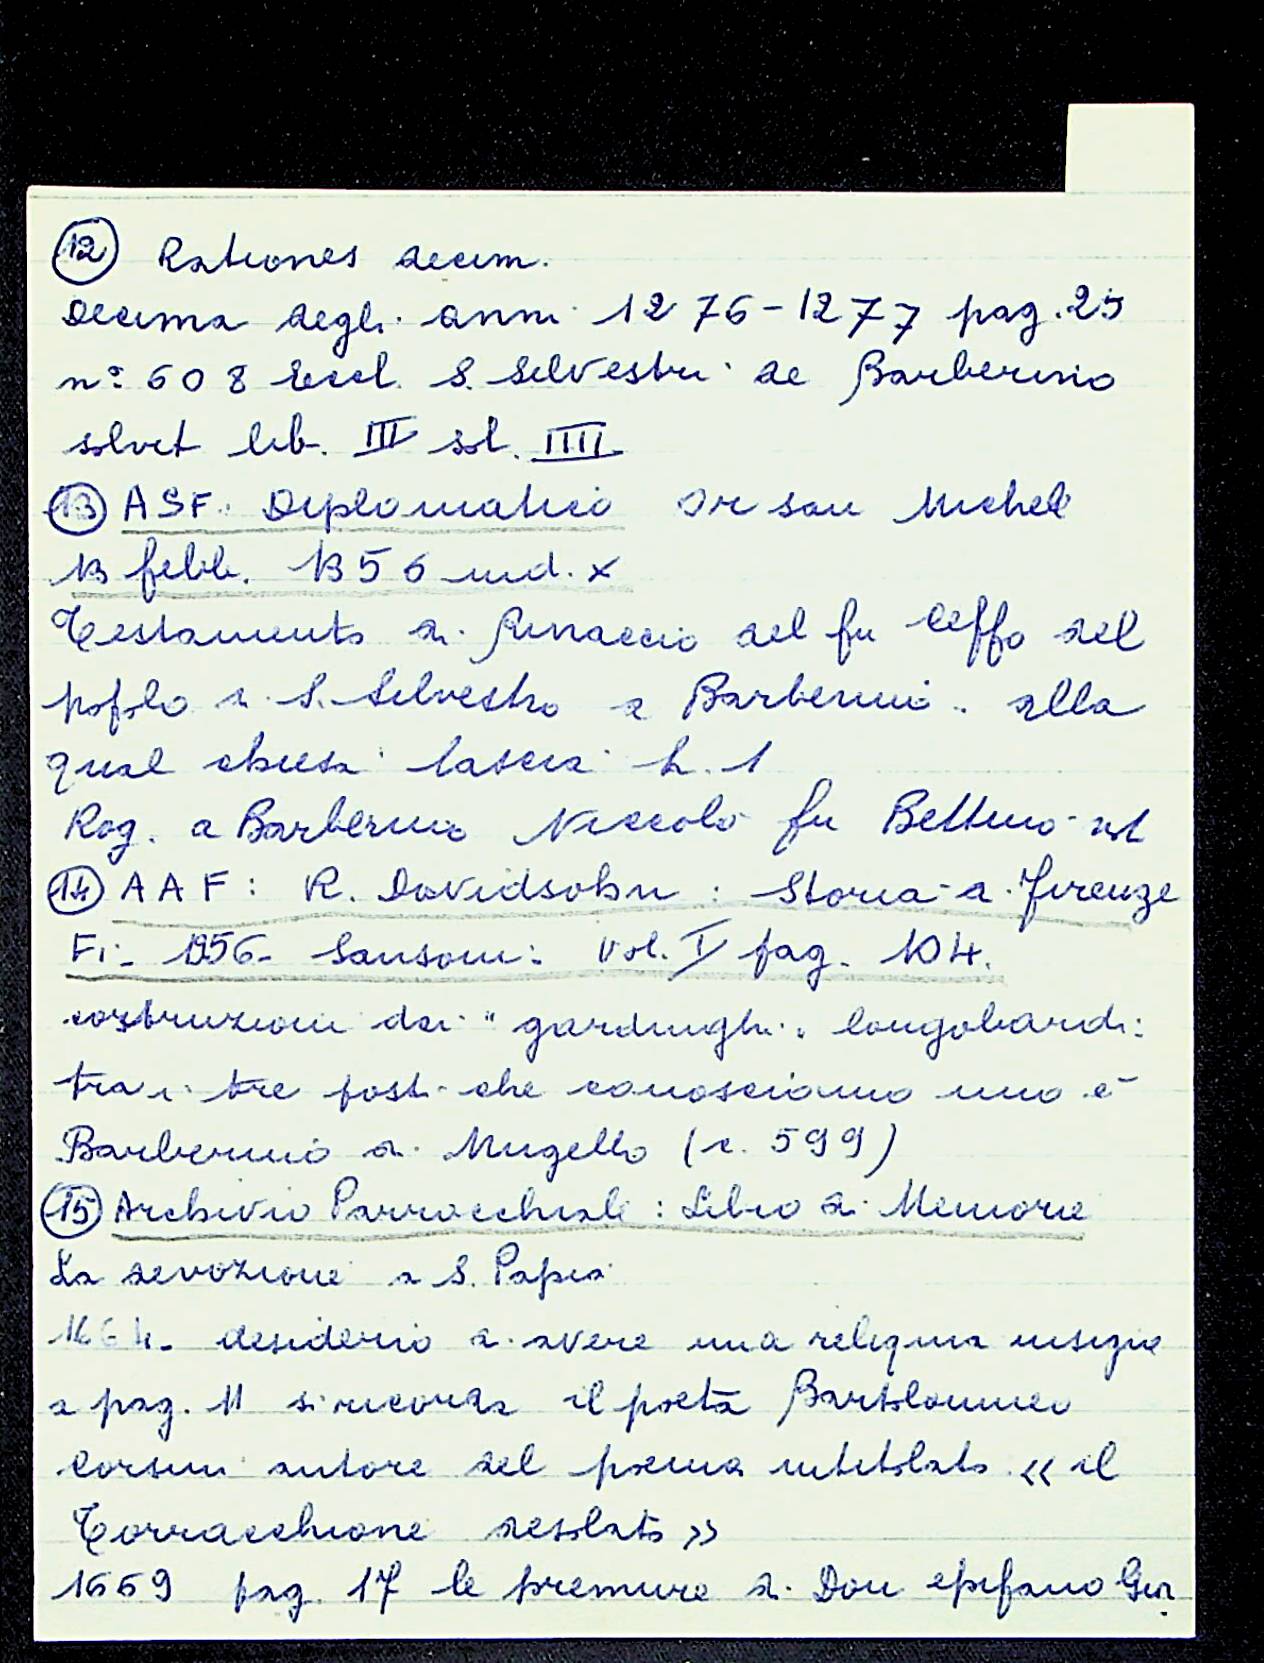 12 Rationes decim.
Decima degli anni 1276-1277 pag. 25
n° 608 Eccl. S. Selvestri de Barberino
solvet lib. III sol. IIII
13 ASF. Diplomatico Or san Michele
13 febb. 1356 ind. X
Testamento di Rinaccio del fu Ceffo del
popolo di S. Silvestro a Barberino. alla
qual chiesa lascia L. 1
Rog. a Barberino Niccolò fu Bettino not
14 AAF: R. Davidsohn: Storia di Firenze
Fi- 1956- Sansoni: Vol. I pag. 104.
costruzioni dei "gardinghi" longobardi:
tra i tre posti che conosciamo uno è
Barberino di Mugello (c. 599)
15 Archivio Parrocchiale: Libro di Memorie
La devozione a S. Papia
1664- desiderio di avere una reliquia insigne
a pag. 11 si ricorda il poeta Bartolommeo
Corsini autore del poema intitolato «il
Torracchione desolato»
1669 pag. 17 le premure di Don epifano